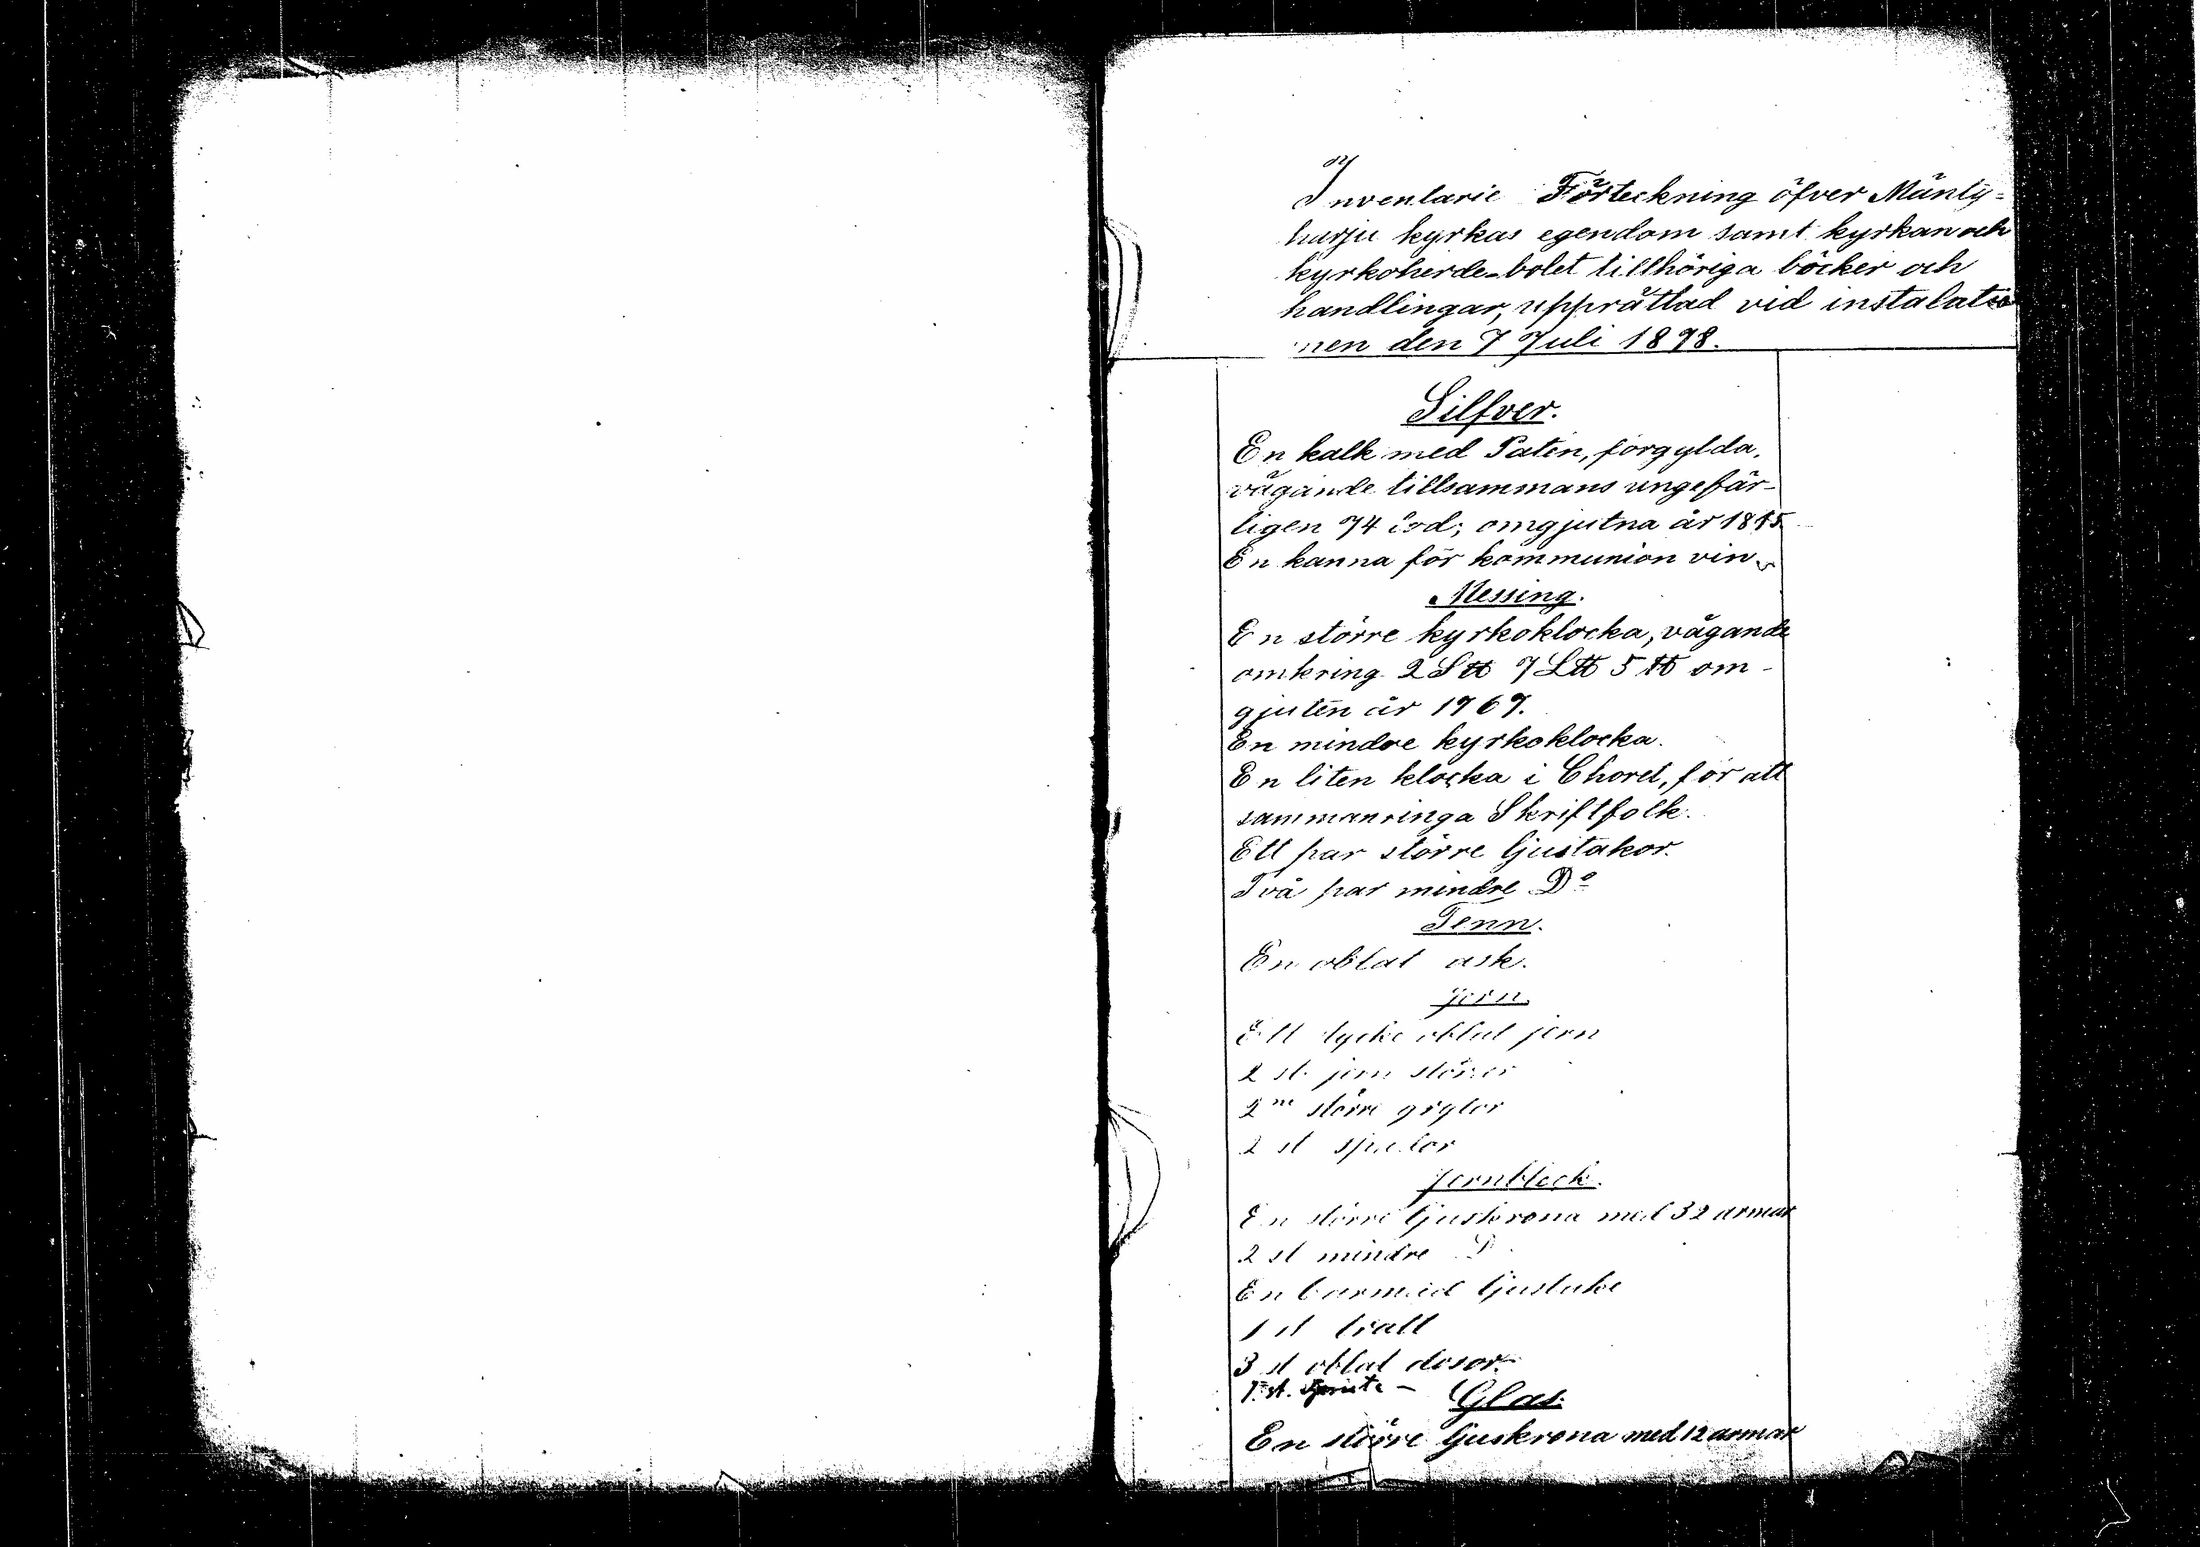 Inventarie Förteckning öfver Mänty=
harju kyrkas egendom samt kyrkan och
kyrkoherde-bolet tillhöriga böcker och
handlingar, upprättad vid instalatio
nen den 7 Juli 1898.
Silfver.
En kalk med Paten, förgylda,
vägande tillsammans ungefär-
ligen 74 lod; omgjutna år 1815
En kanna för kommunion vin
Messing.
En större kyrkoklocka, vägande
omkring 2 S℔ 7 L℔ 5 ℔ om-
gjuten år 1767.
En mindre kyrkoklocka.
En liten klocka i Choret, för att
sammanringa Skriftfolk.
Ett par större ljustakor.
Två par mindre Do
Tenn.
En oblat ask.
Jern.
Ett tycke oblat jern
2 st. jern störer
2 ne större grytor
2 st
Jernbleck.
En större ljuskrona med 32 armar
2 st mindre D
En ljustake
1 st tratt
3 st oblat dosor.
1 st.
Glas.
En större ljuskrona med 12 armar